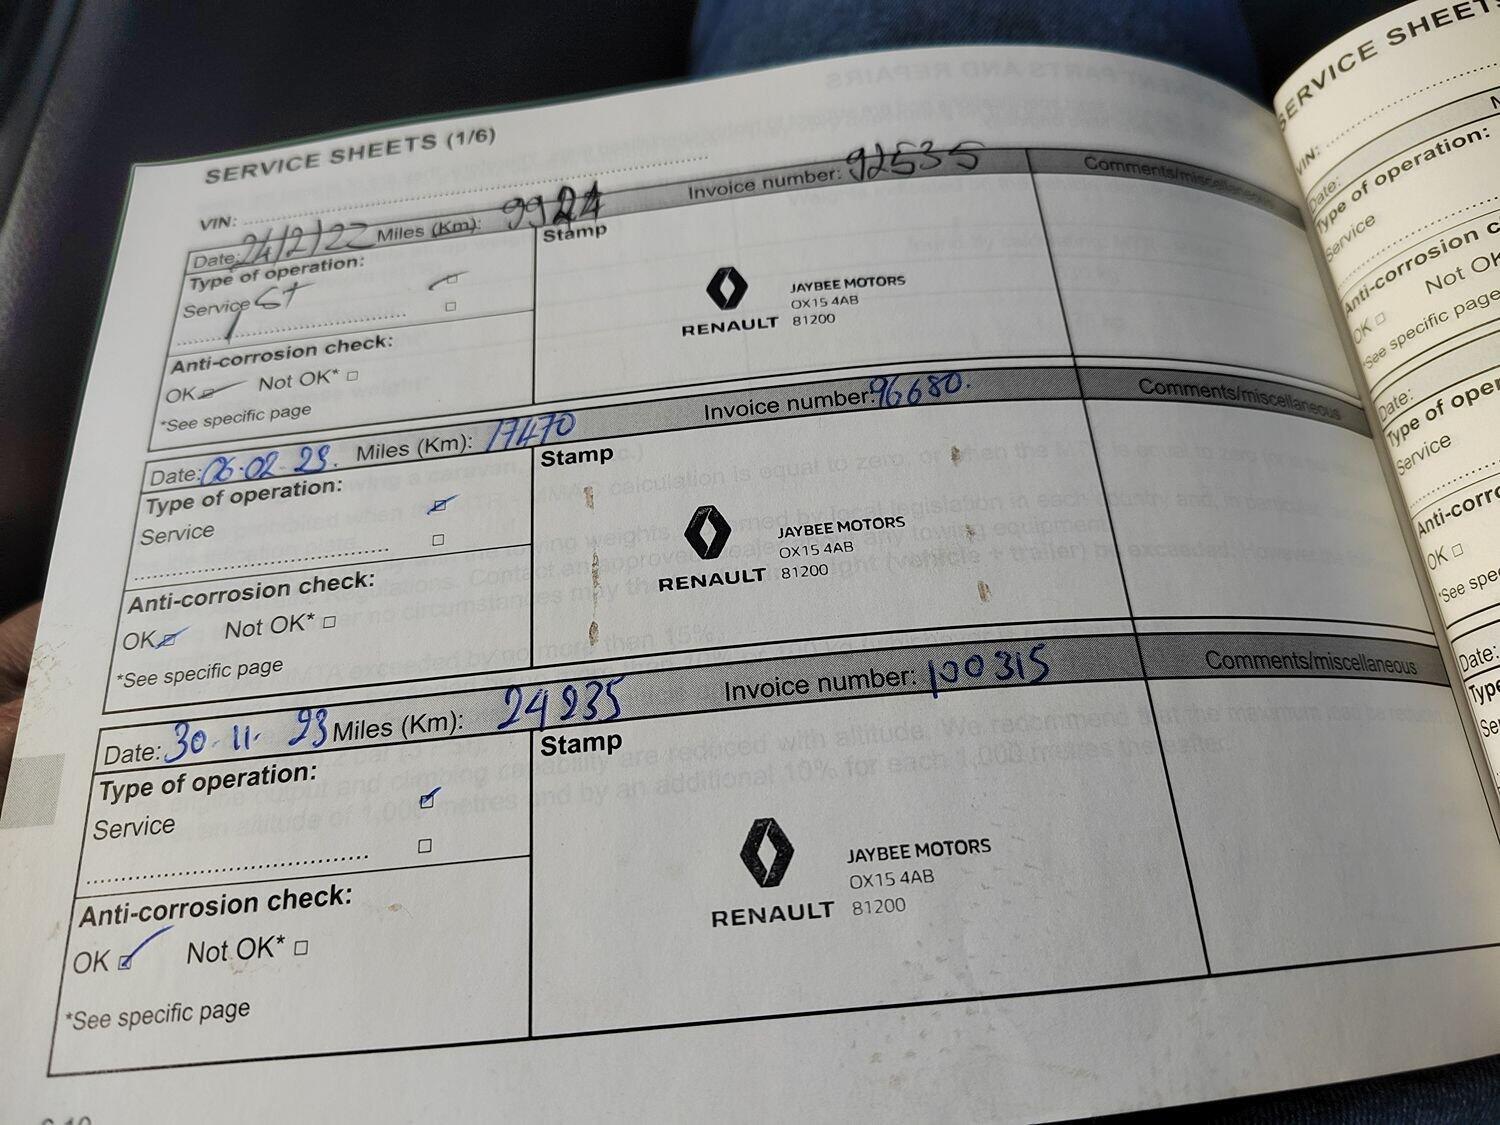 SERVICE SHEETS (1/6)
VIN:
Date: 24/2/22 Miles (Km): 9924 Invoice number: 92535 Comments/miscellaneous
Type of operation:
Service 1st
Anti-corrosion check:
OK Not OK*
*See specific page
Stamp
RENAULT
JAYBEE MOTORS
OX15 4AB
81200
Date: 06-02-23. Miles (Km): 17470 Invoice number: 96680. Comments/miscellaneous
Type of operation:
Service
Anti-corrosion check:
OK Not OK*
*See specific page
Stamp
RENAULT
JAYBEE MOTORS
OX15 4AB
81200
Date: 30-11-23 Miles (Km): 24235 Invoice number: 100315 Comments/miscellaneous
Type of operation:
Service
Anti-corrosion check:
OK Not OK*
*See specific page
Stamp
RENAULT
JAYBEE MOTORS
OX15 4AB
81200
SERVICE SHEETS
VIN:
Date:
Type of operation:
Service
Anti-corrosion
Not OK
OK
*See specific page
Date:
Type of
Service
OK
Date: